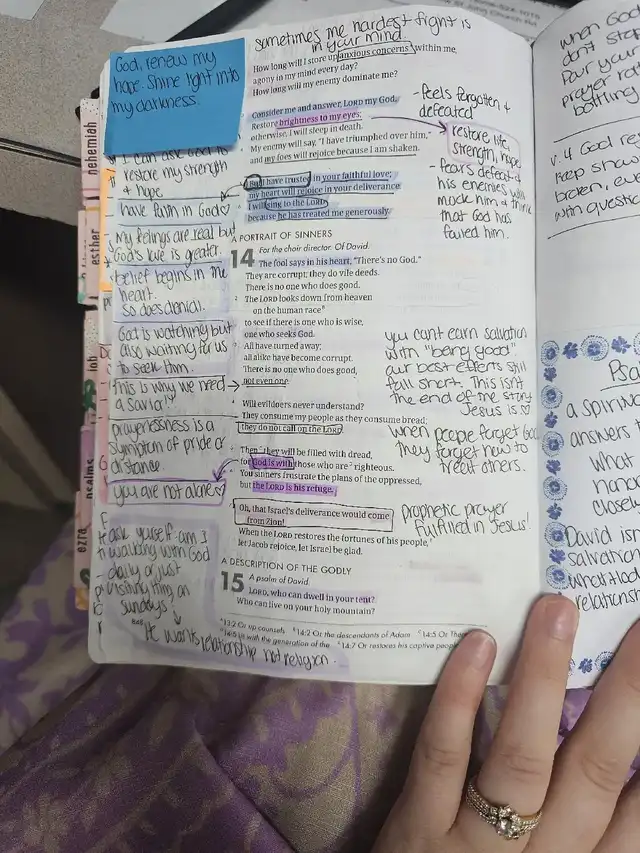 sometimes the hardest fight is
in your mind.
God, renew my
hope. Shine light into
my darkness.
How long will I store up anxious concerns within me,
agony in my mind every day?
How long will my enemy dominate me?
Consider me and answer, LORD my God.
Restore brightness to my eyes;
otherwise, I will sleep in death.
My enemy will say, "I have triumphed over him,"
and my foes will rejoice because I am shaken.
But I have trusted in your faithful love;
my heart will rejoice in your deliverance.
I will sing to the LORD
because he has treated me generously.
A PORTRAIT OF SINNERS
14 For the choir director. Of David.
The fool says in his heart, "There's no God."
They are corrupt; they do vile deeds.
There is no one who does good.
2 The LORD looks down from heaven
on the human race
to see if there is one who is wise,
one who seeks God.
All have turned away;
all alike have become corrupt.
There is no one who does good,
not even one.
Will evildoers never understand?
They consume my people as they consume bread;
they do not call on the LORD.
Then they will be filled with dread,
for God is with those who are righteous.
You sinners frustrate the plans of the oppressed,
but the LORD is his refuge.
Oh, that Israel's deliverance would come
from Zion!
When the LORD restores the fortunes of his people,
let Jacob rejoice, let Israel be glad.
A DESCRIPTION OF THE GODLY
15 A psalm of David.
LORD, who can dwell in your tent?
Who can live on your holy mountain?
13:2 Or up counsels 14:2 Or the descendants of Adam 14:5 Or
14:5 is with the generation of the 14:7 Or restores his captive people
I can ask God to
restore my strength
+ hope
have faith in God
My feelings are real but
God's love is greater.
belief begins in the
heart.
so does denial.
God is watching but
also waiting for us
to seek Him.
This is why we need
a savior!
prayerlessness is a
symptom of pride or
distance.
you are not alone ♡
ask yourself: am I
walking with God
daily or just
visiting Him on
Sundays?
He wants relationship not religion.
- Feels forgotten +
defeated
restore life,
strength, hope
- fears defeat +
his enemies will
mock him + think
that God has
failed him.
you can't earn salvation
with "being good"
our best efforts still
fall short. This isn't
the end of the story
Jesus is ♡
When people forget God
they forget how to
treat others.
prophetic prayer
fulfilled in Jesus!
nehemiah
esther
job
psalms
ezra
when God
don't stop
Pour your
prayer
bottling
v. 4 God
keep
broken, even
with
a
answers
What
closely
David
salvation
relationship